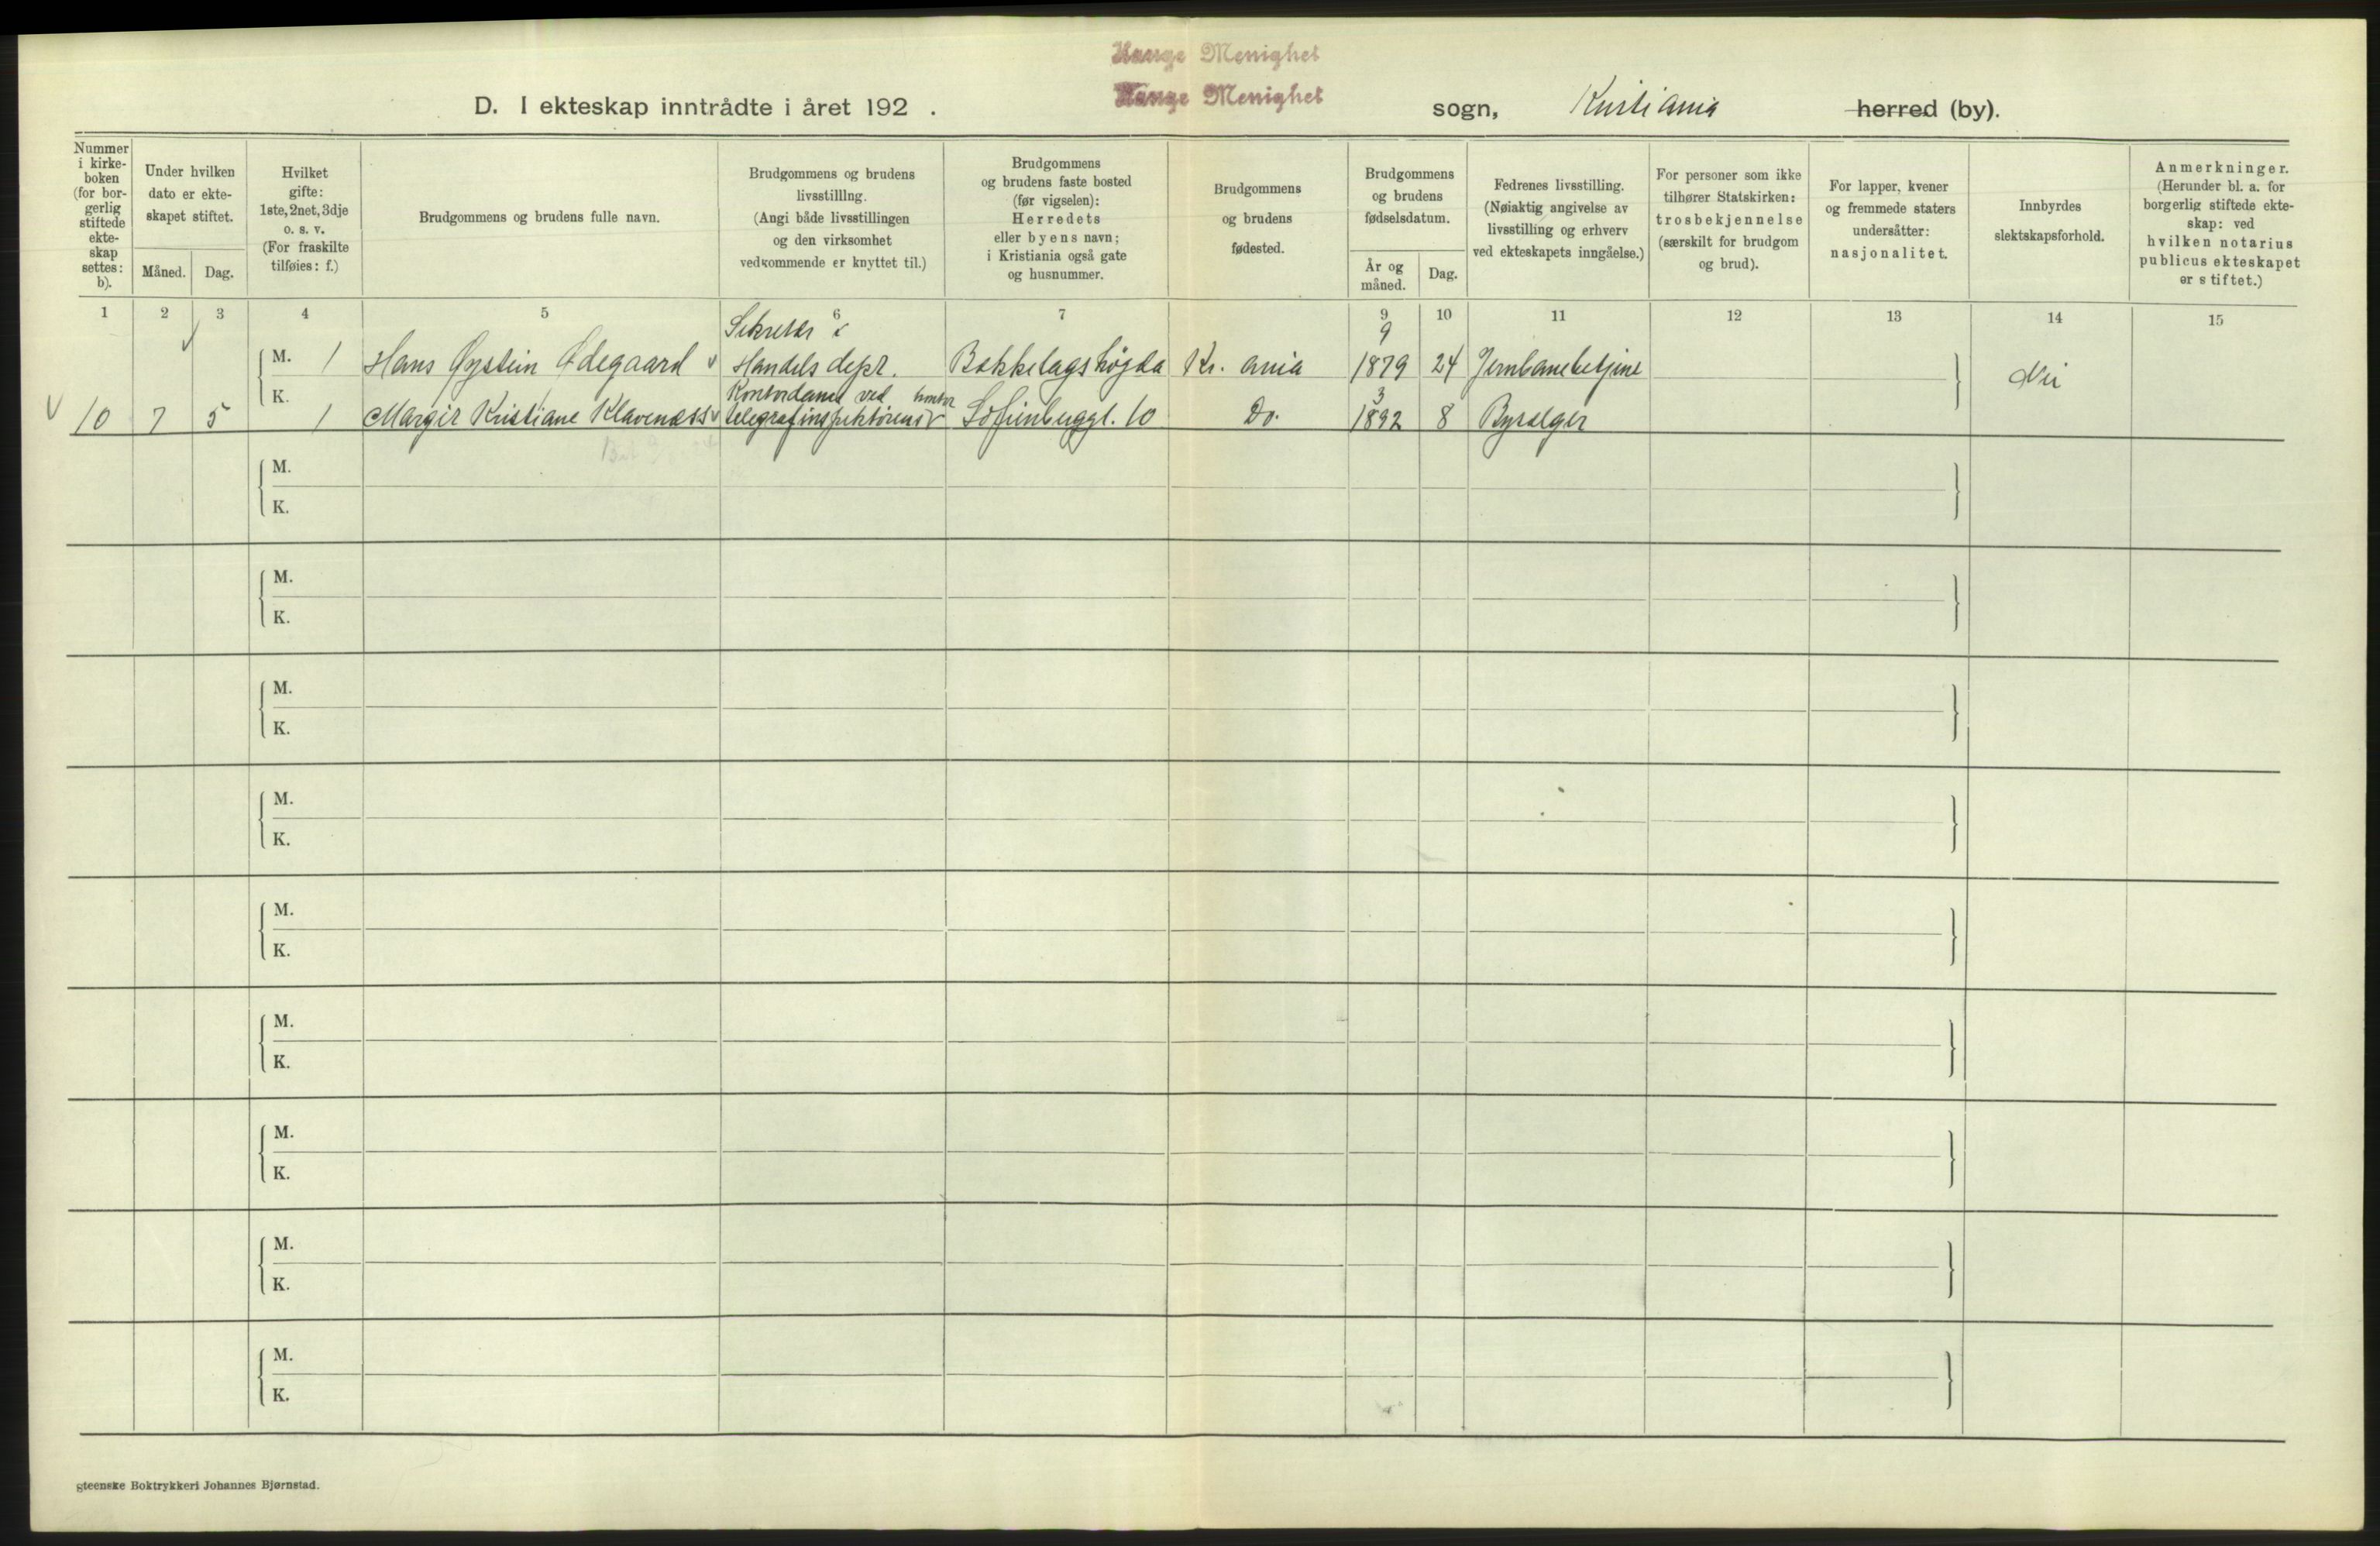 Hauge Menighet
Hauge Menighet
D. I ekteskap inntrådte i året 192 . sogn, Kristiania herred (by).
Nummer i kirke-boken (for bor-gerlig stiftede ekte-skap settes: b).
Under hvilken dato er ekte-skapet stiftet.
Måned. Dag.
Hvilket gifte: 1ste, 2net, 3dje o. s. v. (For fraskilte tilføies: f.)
Brudgommens og brudens fulle navn.
Brudgommens og brudens livsstilllng. (Angi både livsstillingen og den virksomhet vedkommende er knyttet til.)
Brudgommens og brudens faste bosted (før vigselen): Herredets eller byens navn; i Kristiania også gate og husnummer.
Brudgommens og brudens fødested.
Brudgommens og brudens fødselsdatum.
År og måned. Dag.
Fedrenes livsstilling. (Nøiaktig angivelse av livsstilling og erhverv ved ekteskapets inngåelse.)
For personer som ikke tilhører Statskirken: trosbekjennelse (særskilt for brudgom og brud).
For lapper, kvener og fremmede staters undersåtter: nasjonalitet.
Innbyrdes slektskapsforhold.
Anmerkninger. (Herunder bl. a. for borgerlig stiftede ekte-skap: ved hvilken notarius publicus ekteskapet er stiftet.)
1 2 3 4 5 6 7 9 10 11 12 13 14 15
Sekretær i 9
M. 1 Hans Øystein Ødegaard Handels dept. Bekkelagshøgda Kr. ania 1879 24 Jernbanebetjent Nei
K. Kontordame ved kontor 3
10 7 5 1 Margit Kristiane Klavenæss telegrafinspektørens Sofienberggt. 10 Do. 1892 8 Byselger
M.
K.
M.
K.
M.
K.
M.
K.
M.
K.
M.
K.
M.
K.
M.
K.
M.
K.
steenske Boktrykkeri Johannes Bjørnstad.